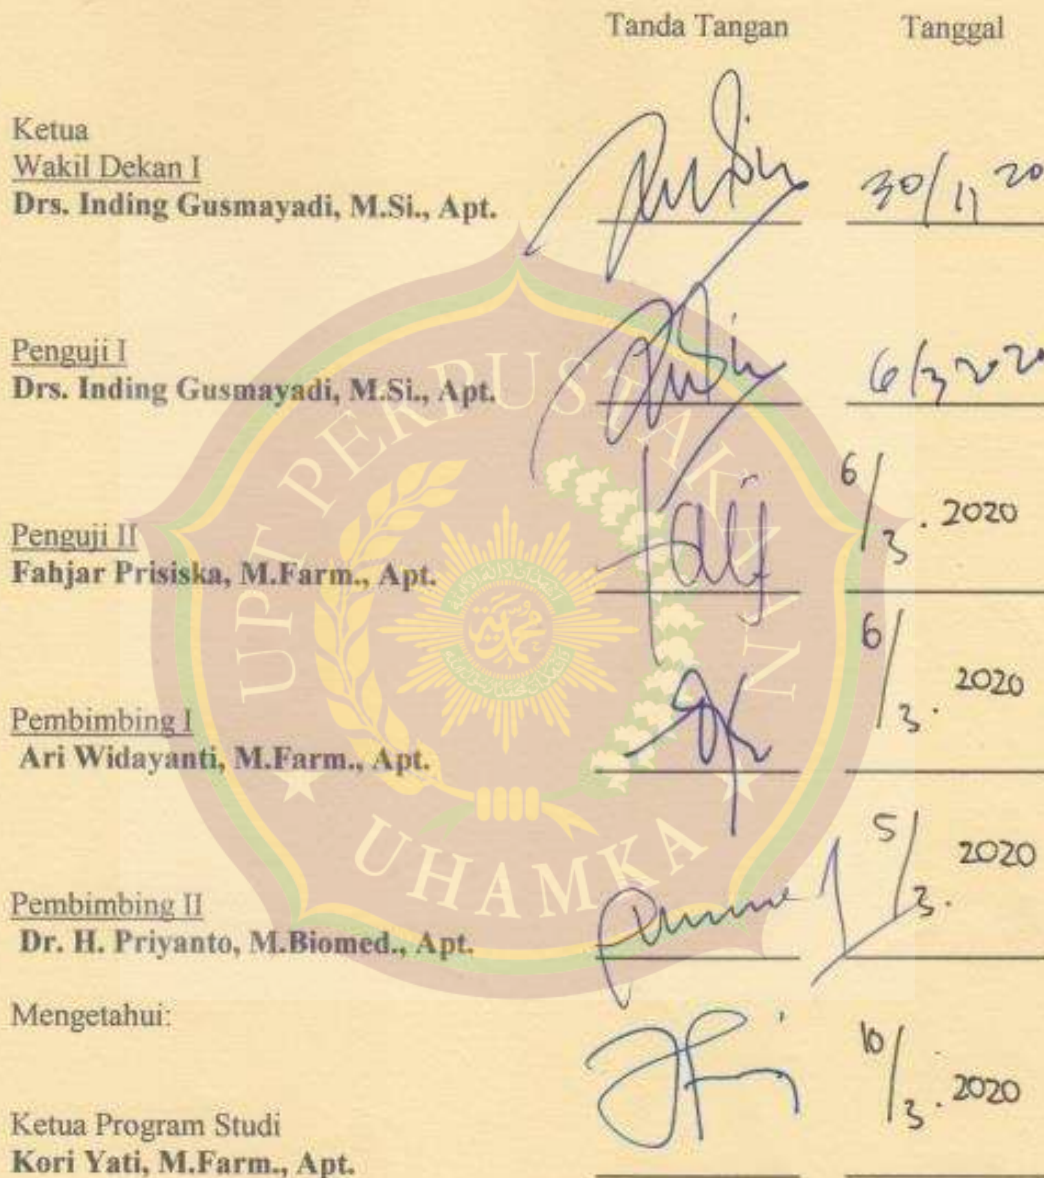 Tanda Tangan Tanggal
Ketua
Wakil Dekan I
Drs. Inding Gusmayadi, M.Si., Apt. 30/11 20
Penguji I
Drs. Inding Gusmayadi, M.Si., Apt. 6/3 2020
Penguji II
Fahjar Prisiska, M.Farm., Apt. 6/3. 2020
Pembimbing I
Ari Widayanti, M.Farm., Apt. 6/3. 2020
Pembimbing II
Dr. H. Priyanto, M.Biomed., Apt. 5/3. 2020
Mengetahui:
Ketua Program Studi
Kori Yati, M.Farm., Apt. 10/3. 2020
UPT PERPUSTAKAAN
UHAMKA